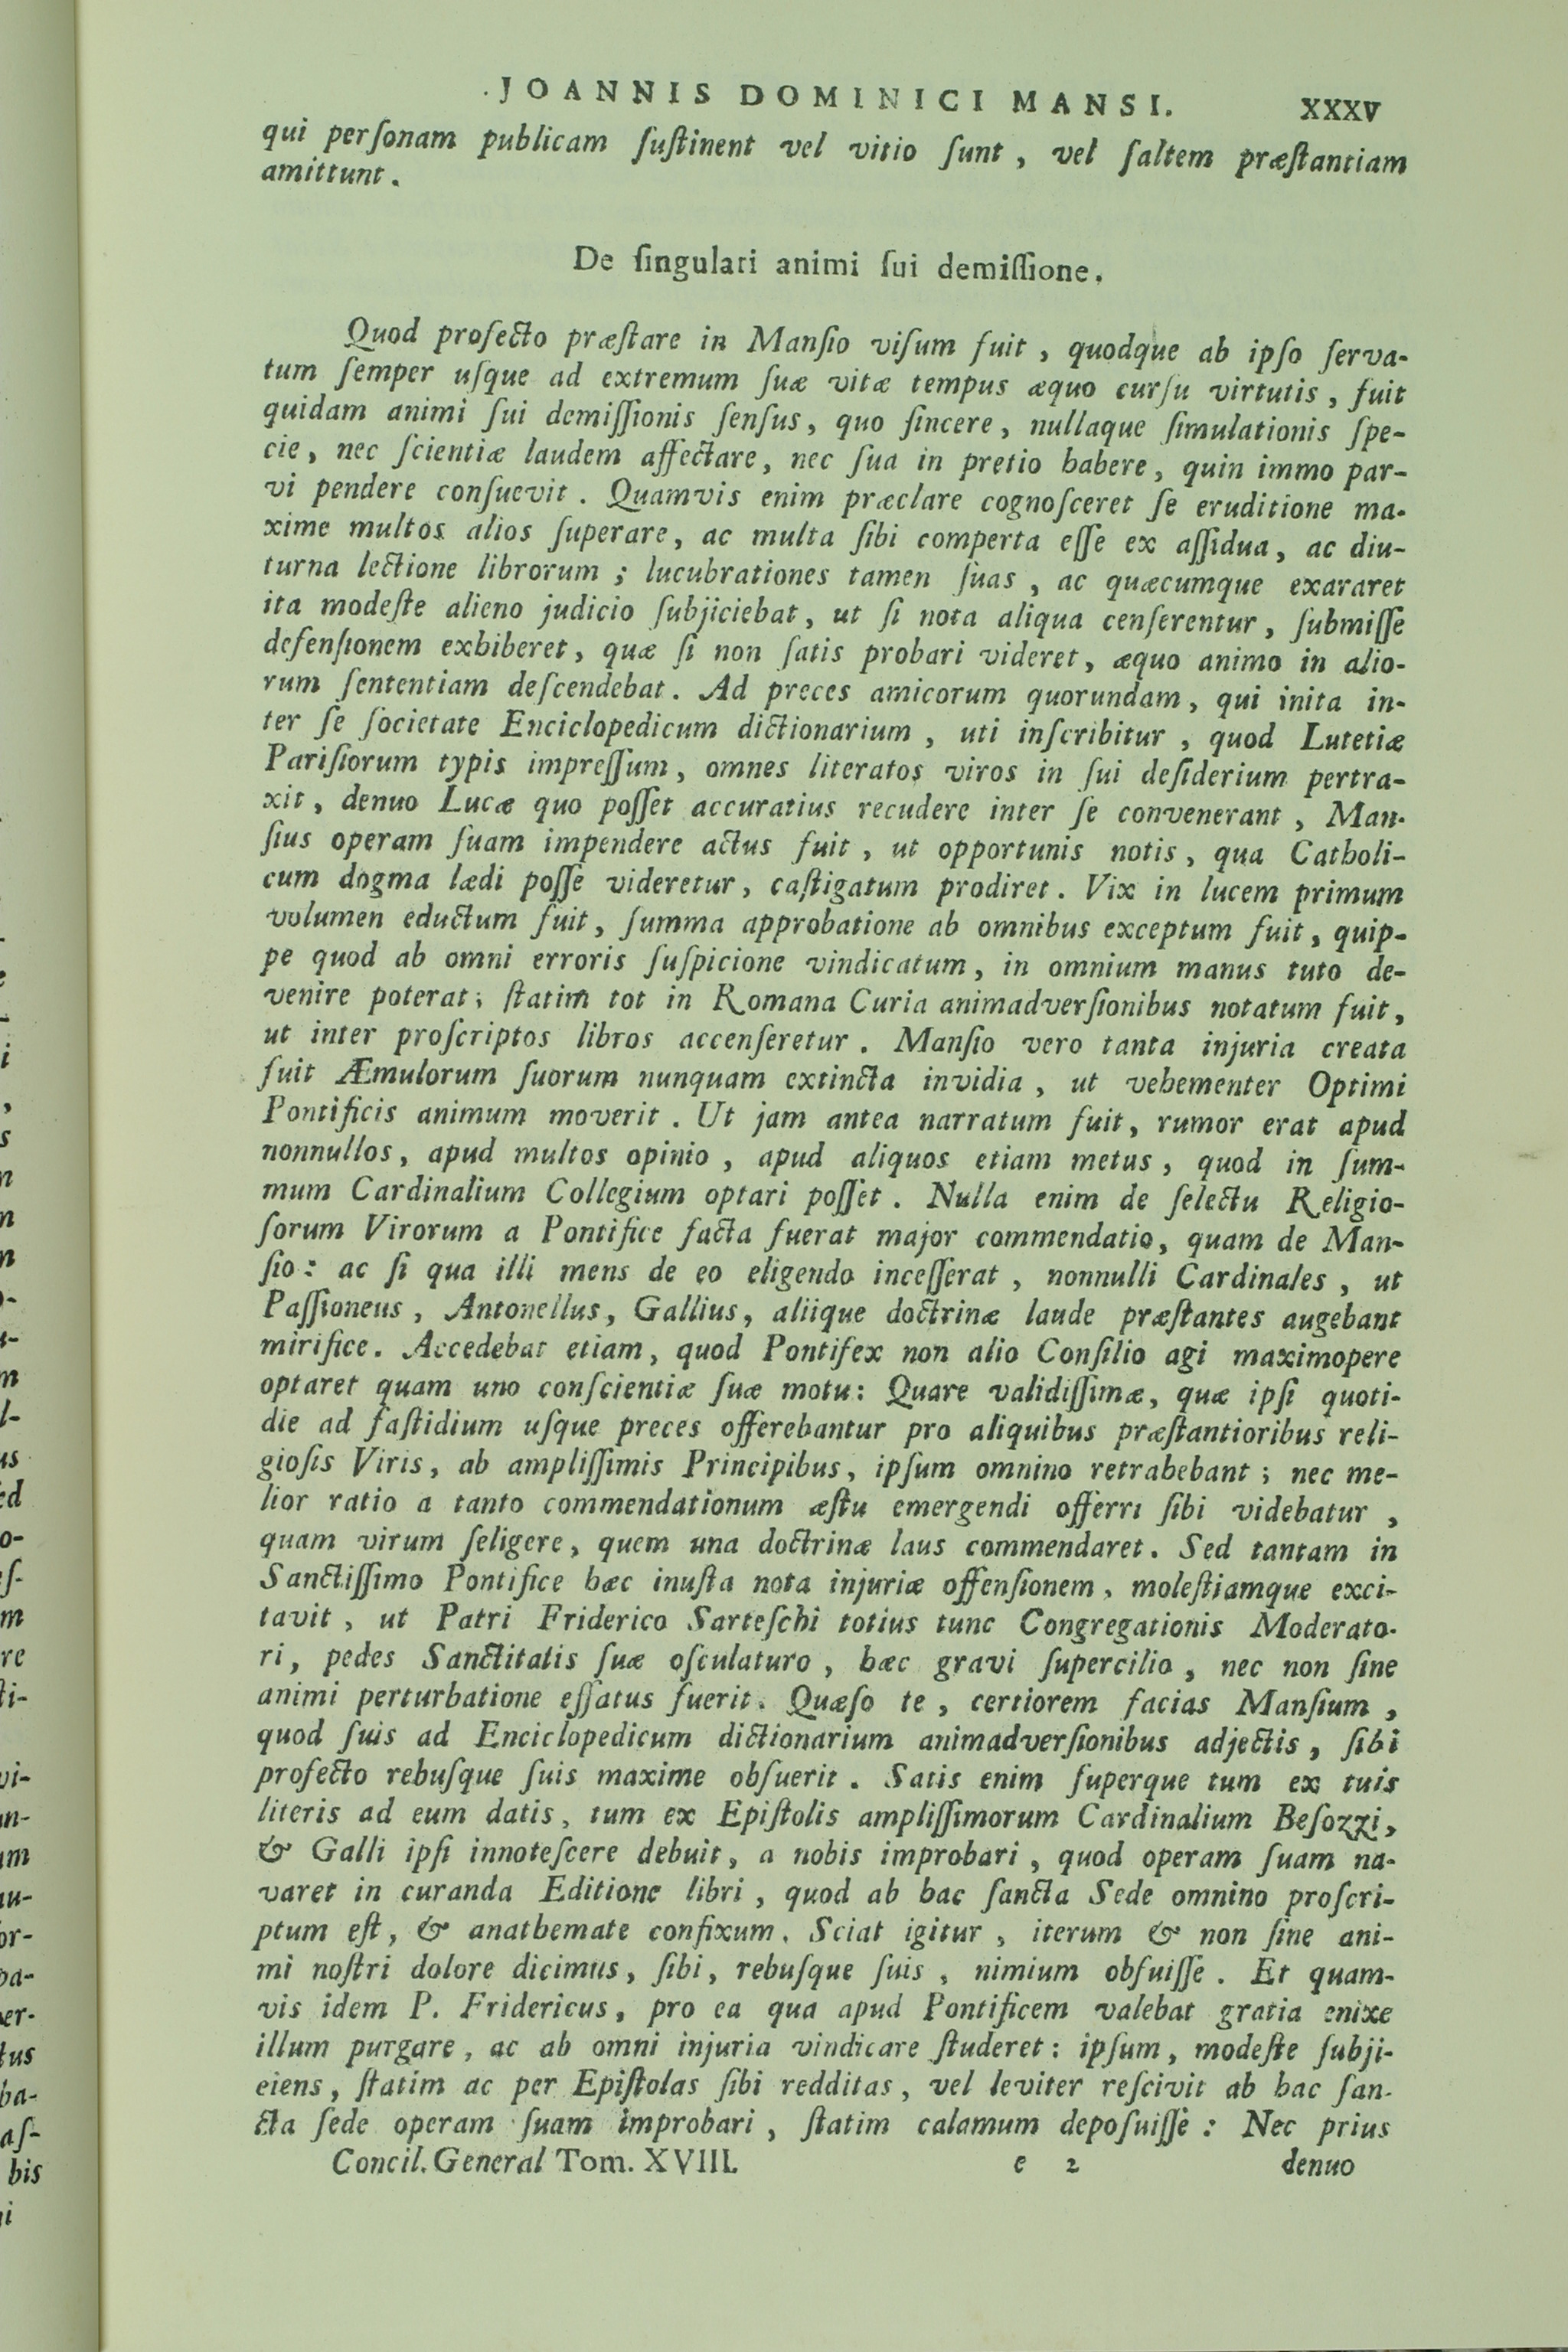 JOANNIS DOMINICI MANSI. XXXV
qui perſonam publicam ſuſtinent vel vitio ſunt, vel ſaltem præſtantiam
amittunt.
De ſingulari animi ſui demiſſione.
Quod profecto præſtare in Manſio viſum fuit, quodque ab ipſo ſerva-
tum ſemper uſque ad extremum ſuæ vitæ tempus æquo curſu virtutis, fuit
quidam animi ſui demiſſionis ſenſus, quo ſincere, nullaque ſimulationis ſpe-
cie, nec ſcientiæ laudem affectare, nec ſua in pretio habere, quin immo par-
vi pendere conſuevit. Quamvis enim præclare cognoſceret ſe eruditione ma-
xime multos alios ſuperare, ac multa ſibi comperta eſſe ex aſſidua, ac diu-
turna lectione librorum; lucubrationes tamen ſuas, ac quæcumque exararet
ita modeſte alieno judicio ſubjiciebat, ut ſi nota aliqua cenſerentur, ſubmiſſe
defenſionem exhiberet, quæ ſi non ſatis probari videret, æquo animo in alio-
rum ſententiam deſcendebat. Ad preces amicorum quorundam, qui inita in-
ter ſe ſocietate Enciclopedicum dictionarium, uti inſcribitur, quod Lutetiæ
Pariſiorum typis impreſſum, omnes literatos viros in ſui deſiderium pertra-
xit, denuo Lucæ quo poſſet accuratius recudere inter ſe convenerant, Man-
ſius operam ſuam impendere actus fuit, ut opportunis notis, qua Catholi-
cum dogma lædi poſſe videretur, caſtigatum prodiret. Vix in lucem primum
volumen eductum fuit, ſumma approbatione ab omnibus exceptum fuit, quip-
pe quod ab omni erroris ſuſpicione vindicatum, in omnium manus tuto de-
venire poterat; ſtatim tot in Romana Curia animadverſionibus notatum fuit,
ut inter proſcriptos libros accenſeretur. Manſio vero tanta injuria creata
fuit Æmulorum ſuorum nunquam extincta invidia, ut vehementer Optimi
Pontificis animum moverit. Ut jam antea narratum fuit, rumor erat apud
nonnullos, apud multos opinio, apud aliquos etiam metus, quod in ſum-
mum Cardinalium Collegium optari poſſet. Nulla enim de ſelectu Religio-
ſorum Virorum a Pontifice facta fuerat major commendatio, quam de Man-
ſio: ac ſi qua illi mens de eo eligendo inceſſerat, nonnulli Cardinales, ut
Paſſioneus, Antonellus, Gallius, aliique doctrinæ laude præſtantes augebant
mirifice. Accedebat etiam, quod Pontifex non alio Conſilio agi maximopere
optaret quam uno conſcientiæ ſuæ motu: Quare validiſſimæ, quæ ipſi quoti-
die ad faſtidium uſque preces offerebantur pro aliquibus præſtantioribus reli-
gioſis Viris, ab ampliſſimis Principibus, ipſum omnino retrahebant; nec me-
lior ratio a tanto commendationum æſtu emergendi offerri ſibi videbatur,
quam virum ſeligere, quem una doctrinæ laus commendaret. Sed tantam in
Sanctiſſimo Pontifice hæc inuſta nota injuriæ offenſionem, moleſtiamque exci-
tavit, ut Patri Friderico Sarteſchi totius tunc Congregationis Moderato-
ri, pedes Sanctitatis ſuæ oſculaturo, hæc gravi ſupercilio, nec non ſine
animi perturbatione effatus fuerit. Quæſo te, certiorem facias Manſium,
quod ſuis ad Enciclopedicum dictionarium animadverſionibus adjectis, ſibi
profecto rebuſque ſuis maxime obfuerit. Satis enim ſuperque tum ex tuis
literis ad eum datis, tum ex Epiſtolis ampliſſimorum Cardinalium Beſozzi,
& Galli ipſi innoteſcere debuit, a nobis improbari, quod operam ſuam na-
varet in curanda Editione libri, quod ab hac ſancta Sede omnino proſcri-
ptum eſt, & anathemate confixum. Sciat igitur, iterum & non ſine ani-
mi noſtri dolore dicimus, ſibi, rebuſque ſuis, nimium obfuiſſe. Et quam-
vis idem P. Fridericus, pro ea qua apud Pontificem valebat gratia enixe
illum purgare, ac ab omni injuria vindicare ſtuderet: ipſum, modeſte ſubji-
eiens, ſtatim ac per Epiſtolas ſibi redditas, vel leviter reſcivit ab hac ſan-
cta ſede operam ſuam improbari, ſtatim calamum depoſuiſſe: Nec prius
Concil. General Tom. XVIII. e 2 denuo